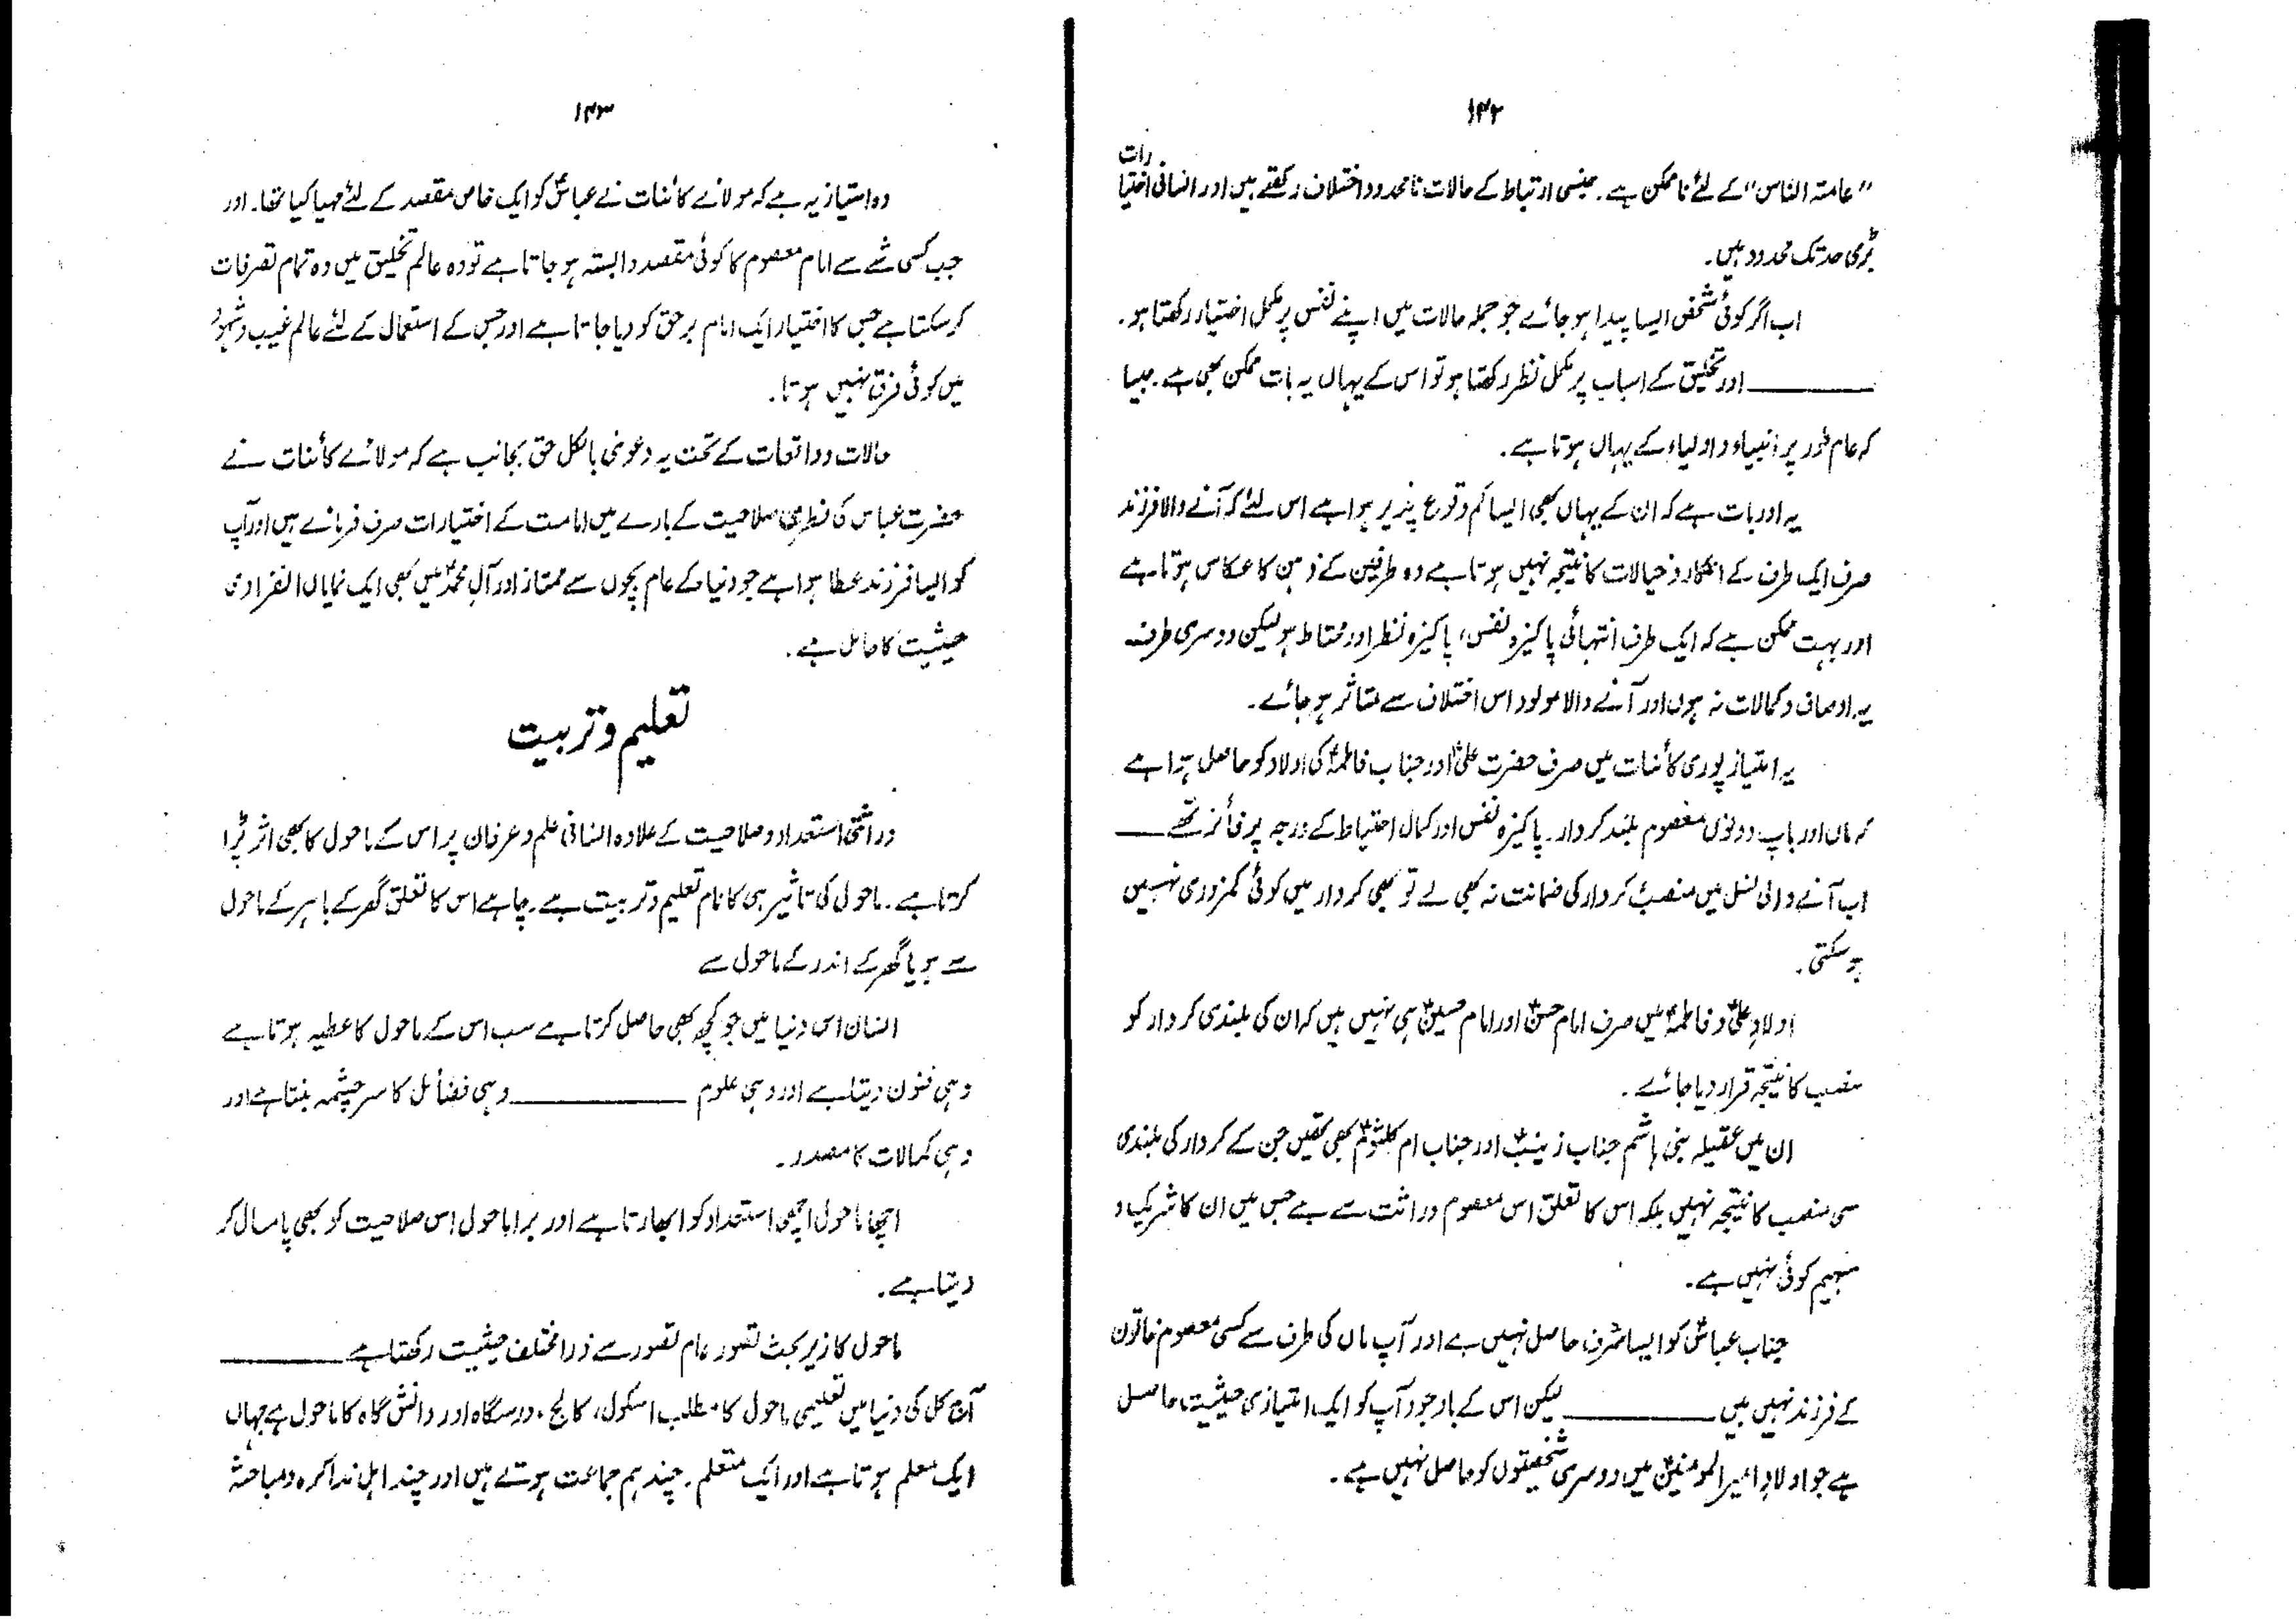 ۱۴۲
"عامۃ الناس" کے لئے ناممکن ہے۔ جنسی ارتباط کے حالات نامحدود اختلاف رکھتے ہیں اور انسانی اختیارات
بڑی حد تک محدود ہیں۔
اب اگر کوئی شخص ایسا پیدا ہو جائے جو جملہ حالات میں اپنے نفس پر مکمل اختیار رکھتا ہو۔
ــــــــــ اور تخلیق کے اسباب پر مکمل نظر رکھتا ہو تو اس کے یہاں یہ بات ممکن بھی ہے۔ جیسا
کہ عام طور پر انبیاء و اولیاء کے یہاں ہوتا ہے۔
یہ اور بات ہے کہ ان کے یہاں بھی ایسا کم وقوع پذیر ہوا ہے اس لئے کہ آنے والا فرزند
صرف ایک طرف کے افکار و خیالات کا نتیجہ نہیں ہوتا ہے وہ طرفین کے ذہن کا عکاس ہوتا ہے
اور بہت ممکن ہے کہ ایک طرف انتہائی پاکیزہ نفس، پاکیزہ نظر اور محتاط ہو لیکن دوسری طرف
یہ اوصاف و کمالات نہ ہوں اور آنے والا مولود اس اختلاف سے متاثر ہو جائے۔
یہ امتیاز پوری کائنات میں صرف حضرت علیؑ اور جناب فاطمہؑ کی اولاد کو حاصل ہوا ہے
کہ ماں اور باپ دونوں معصوم بلند کردار۔ پاکیزہ نفس اور کمال احتیاط کے درجہ پر فائز تھے ــــــ
اب آنے والی نسل میں منصب کردار کی ضمانت نہ بھی لے تو بھی کردار میں کوئی کمزوری نہیں
ہو سکتی۔
اولادِ علیؑ و فاطمہؑ میں صرف امام حسنؑ اور امام حسینؑ ہی نہیں ہیں کہ ان کی بلندی کردار کو
منصب کا نتیجہ قرار دیا جائے۔
ان میں عقیلہ بنی ہاشم جناب زینبؑ اور جناب ام کلثومؑ بھی تھیں جن کے کردار کی بلندی
سی منصب کا نتیجہ نہیں بلکہ اس کا تعلق اس معصوم وراثت سے ہے جس میں ان کا شریک و
سہیم کوئی نہیں ہے۔
جناب عباسؑ کو ایسا شرف حاصل نہیں ہے اور آپ ماں کی طرف سے کسی معصوم خاتون
کے فرزند نہیں ہیں ــــــــــ لیکن اس کے باوجود آپ کو ایک امتیازی حیثیت حاصل
ہے جو اولادِ امیرالمومنینؑ میں دوسری شخصیتوں کو حاصل نہیں ہے۔
۱۴۳
وہ امتیاز یہ ہے کہ مولائے کائنات نے عباسؑ کو ایک خاص مقصد کے لئے مہیا کیا تھا۔ اور
جب کسی شے سے امام معصوم کا کوئی مقصد وابستہ ہو جاتا ہے تو وہ عالم تخلیق میں وہ تمام تصرفات
کر سکتا ہے جس کا اختیار ایک امام برحق کو دیا جاتا ہے اور جس کے استعمال کے لئے عالم غیب و شہود
میں کوئی فرق نہیں ہوتا۔
حالات و واقعات کے تحت یہ دعویٰ بالکل حق بجانب ہے کہ مولائے کائنات نے
حضرت عباس کی فطری صلاحیت کے بارے میں امامت کے اختیارات صرف فرمائے ہیں اور آپ
کو ایسا فرزند عطا ہوا ہے جو دنیا کے عام بچوں سے ممتاز اور آلِ محمدؐ میں بھی ایک نمایاں انفرادی
حیثیت کا حامل ہے۔
تعلیم و تربیت
وراثتی استعداد و صلاحیت کے علاوہ انسانی علم و عرفان پر اس کے ماحول کا بھی اثر پڑا
کرتا ہے۔ ماحول کی تاثیر ہی کا نام تعلیم و تربیت ہے۔ چاہے اس کا تعلق گھر کے باہر کے ماحول
سے ہو یا گھر کے اندر کے ماحول سے
انسان اس دنیا میں جو کچھ بھی حاصل کرتا ہے سب اس کے ماحول کا عطیہ ہوتا ہے
وہی فنون دیتا ہے اور وہی علوم ــــــــــ وہی فضائل کا سرچشمہ بنتا ہے اور
وہی کمالات کا مصدر۔
اچھا ماحول اچھی استعداد کو ابھارتا ہے اور برا ماحول اس صلاحیت کو بھی پامال کر
دیتا ہے۔
ماحول کا زیر بحث تصور عام تصور سے ذرا مختلف حیثیت رکھتا ہے ــــــــــ
آج کل کی دنیا میں تعلیمی ماحول کا مطلب اسکول، کالج، درسگاہ اور دانش گاہ کا ماحول ہے جہاں
ایک معلم ہوتا ہے اور ایک متعلم۔ چند ہم جماعت ہوتے ہیں اور چند اہل مذاکرہ و مباحثہ